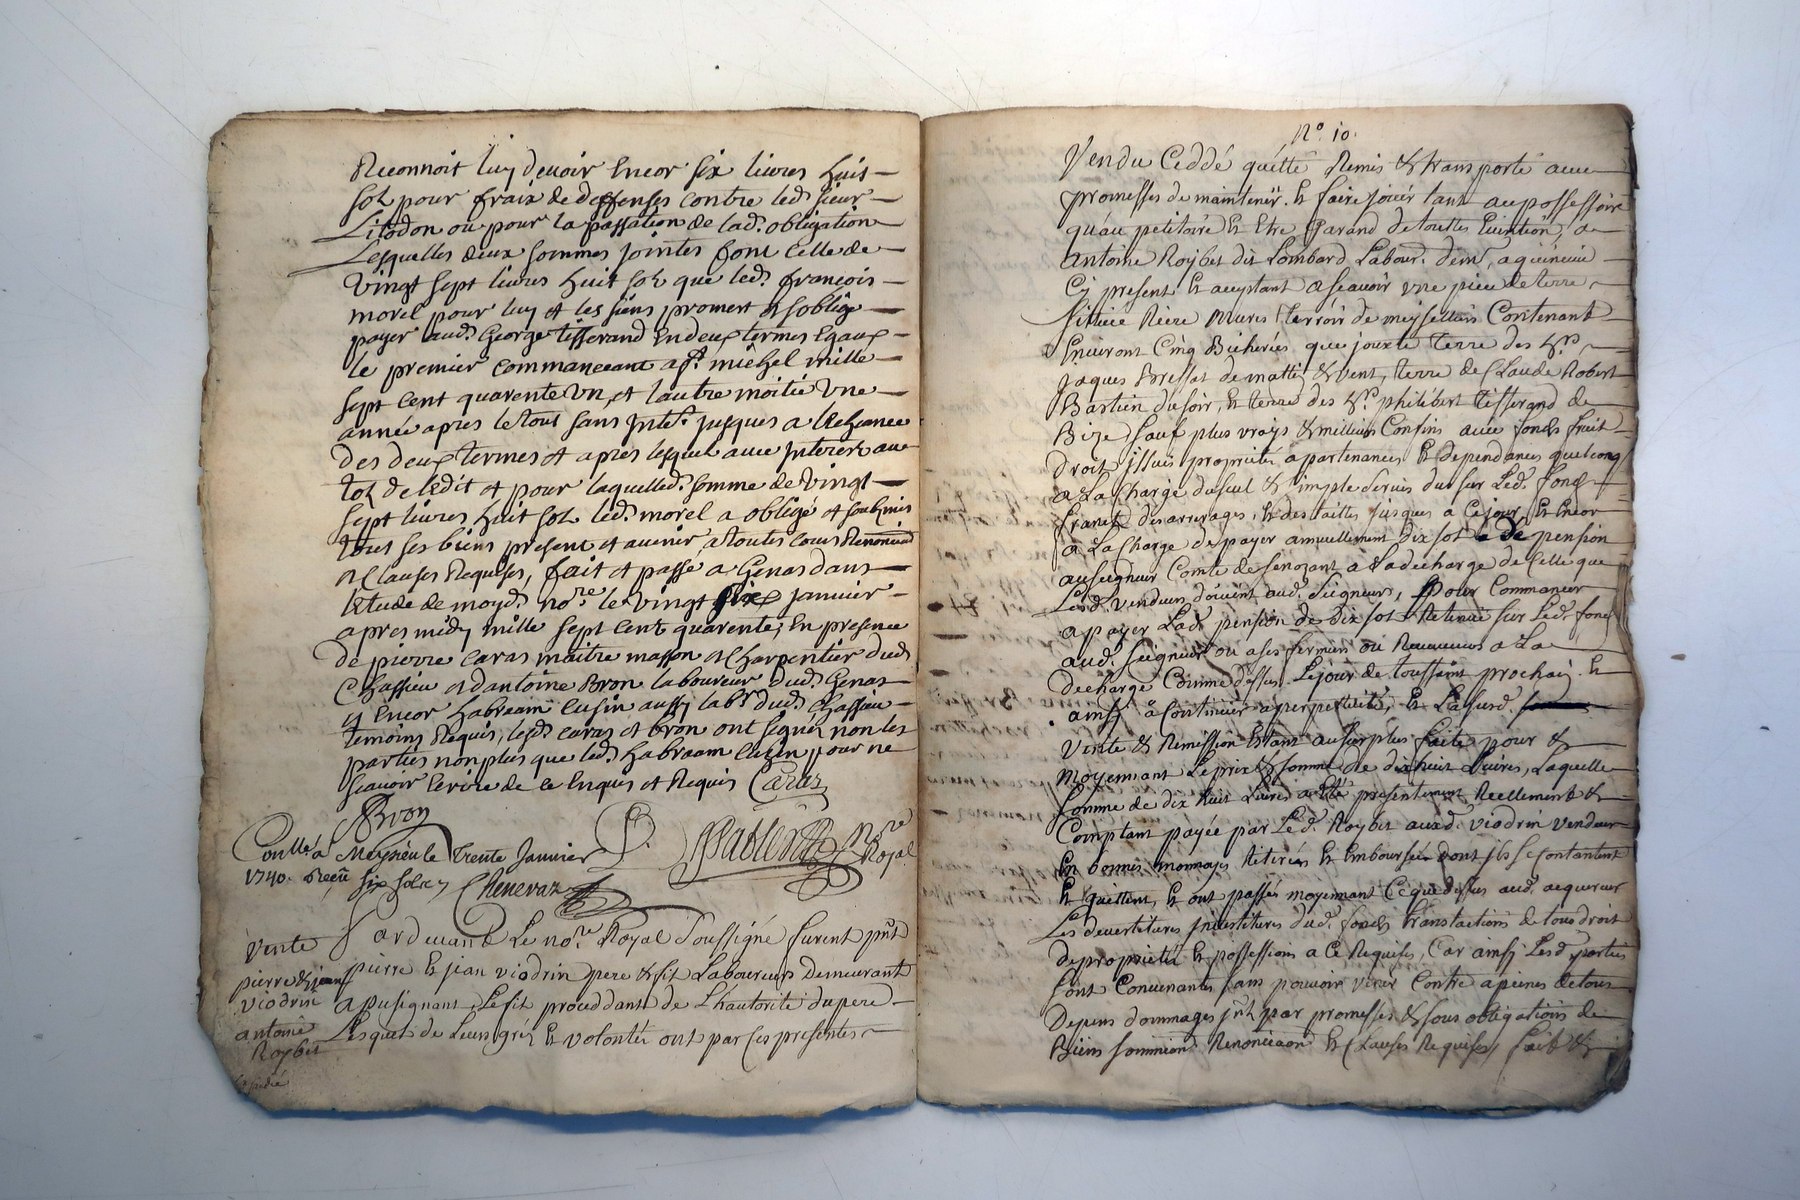 Reconnoit luy devoir Encor six livres huit
sols pour fraix de deffenses contre led. sieur
Lisodon ou pour la passation de lad. obligation
Lesquelles deux sommes jointes font celle de
vingt sept livres huit sols que led. françois
morel pour luy et les siens promest et soblige
payer aud. George tisserand En deux termes Egaux
le premier commanceant a St. michel mille
sept cent quarente un, et lautre moitié une
année apres le tout sans Inte. jusques a lecheance
des deux termes et apres lesquels avec Interest au
sol de ledit et pour laquelle d. somme de vingt
sept livres huit sols led. morel a obligé et soubmis
tous ses biens present et avenir a toutes cours Renonciaon
et Clauses Requises, fait et passé a Genas dans
letude de moyd. nore. le vingt six janvier
apres midy mille sept cent quarente, En presence
de pierre caras maitre masson et charpentier dud.
Chassieu et dantoine Bron laboureur dud. Genas
et Encor habraam cusin aussy labr. dud. chassieu
temoins Requis, lesd. caras et bron ont signé non les
parties non plus que led. habraam cusin pour ne
scavoir Ecrire de ce Enquis et Requis Caraz
Bron
Conllé. a Meyzieu le trente Janvier
1740. Receu six sols Chenevaz
Nore. Royal
vente
pierre & jean
viodrin
antoine
Roybet
Pardevant Le nore. Royal Soussigné furent pnt
pierre Et jean viodrin pere & fils Laboureurs Demeurant
a pusignant, Le fils proceddant de Lhautorité du pere
Lesquels de Leurs gres Et volontés ont par ces presentes
No. 10.
Vendu Ceddé quitté Remis & transporté avec
promesses de maintenir. Et faire jouir tant au possessoire
qu'au petitoire Et Etre garand de touttes Evictions, a
antoine Roybet dit Lombard Labour. demt. a
Cy present Et acceptant a scavoir une piece de terre
sittuée Riere mures terroir de meyssellies Contenant
Environt Cinq Bicherées que jouxte terre des Srs.
jaques Bressat de matin & vent, terre de Claude Robert
Bastien du soir, Et terre des Sr. philibert tisserand de
Bize, sauf plus vrays & meilleurs Confins avec fonds fruit
droit, issues proprietés apartenances Et dependances quelconq.
a La charge du suel & simple servis du sur Led. fonds
franc des arrerages, Et des tailles jusques a Ce jour, Et Encor
a La Charge de payer annuellement dix sols de pension
au seigneur Comte de senozant a La decharge de Celle que
Lesd. vendeurs doivent aud. Seigneur, pour Commancer
a payer Lad. pension de Dix sols Retenue sur Led. fonds
aud. seigneur ou a ses fermiers ou Receveurs a La
decharge Comme dessus Le jour de toussaint prochain Et
ainsy a Continuer a perpetuité, Et La susd.
vente & Remission Etant au surplus faite pour &
moyennant Le prix & somme de dix huit Livres, Laquelle
somme de dix huit Livres a Eté presentement Reellement &
Comptant payée par Led. Roybet auxd. viodrin vendeurs
En bonnes monnoyes Retirées Et Emboursées dont ils se contantent
Et quittent, Et ont passés moyennant Ce que dessus aud. aquereur
Les devestitures jnvestitures dud. fonds translactions de tous droit
de proprieté Et possessions a Ce Requises, Car ainsy Lesd. parties
sont Convenantes sans pouvoir venir Contre a peines de tous
Depens dommages jnt. par promesses & sous obligations de
Biens soumissions Renonciaon Et Clauses Requises, fait &